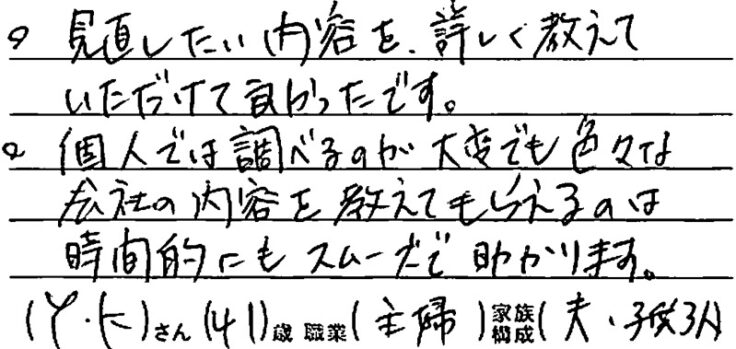 ○ 見直したい内容を、詳しく教えて
いただけて良かったです。
○ 個人では調べるのが大変でも色々な
会社の内容を教えてもらえるのは
時間的にもスムーズで助かります。
(Y・K)さん(41)歳 職業(主婦)家族構成(夫・子供3人)